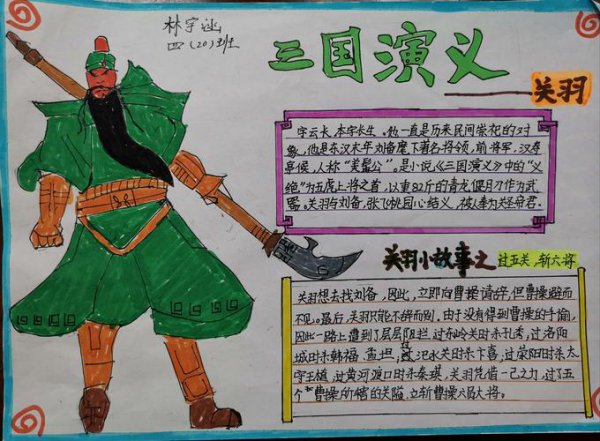 林宇涵
四（20）班
三国演义
——关羽
字云长，本字长生。他一直是历来民间崇祀的对
象，他是东汉末年刘备麾下著名将领，前将军，汉寿
亭候，人称“美髯公”。是小说《三国演义》中的“义
绝”为五虎上将之首，以重82斤的青龙偃月刀作为武
器。关羽与刘备、张飞桃园心结义，被人奉为关圣帝君。
关羽小故事之 过五关，斩六将
关羽想去找刘备，因此，立即向曹操请辞，但曹操避而
不见。最后，关羽只能不辞而别，由于没有得到曹操的手谕，
因此一路上遭到了层层阻拦，过东岭关时杀孔秀，过洛阳
城时杀韩福、孟坦，过汜水关时杀卞喜，过荥阳时杀太
守王植，过黄河渡口时杀秦琪。关羽凭借一己之力，过了五
个曹操所辖的关隘，立斩曹操六员大将。